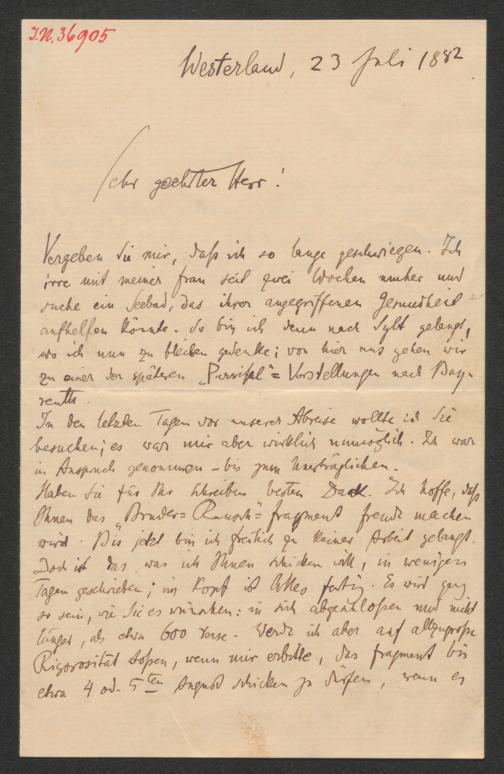 I.N. 36905
Westerland, 23 Juli 1882
Sehr geehrter Herr!
Vergeben Sie mir, daß ich so lange geschwiegen. Ich
irre mit meiner Frau seit zwei Wochen umher und
suche ein Seebad, das ihrer angegriffenen Gesundheit
aufhelfen könnte. So bin ich denn nach Sylt gelangt,
wo ich nun zu bleiben gedenke; von hier aus gehen wir
zu einer der späteren „Parsifal"= Vorstellungen nach Bay-
reuth.
In den letzten Tagen vor unserer Abreise wollte ich Sie
besuchen; es war mir aber wirklich unmöglich. Ich war
in Anspruch genommen – bis zum Unerträglichen.
Haben Sie für Ihr Schreiben besten Dank. Ich hoffe, daß
Ihnen das „Bruder= Rausch"= Fragment Freude machen
wird. Bis jetzt bin ich freilich zu keiner Arbeit gelangt.
Doch ist das, was ich Ihnen schicken will, in wenigen
Tagen geschrieben; im Kopf ist Alles fertig. Es wird ganz
so sein, wie Sie es wünschen: in sich abgeschlossen und nicht
länger, als etwa 600 Verse. Werde ich aber auf allzugroße
Rigorosität stoßen, wenn mir erbitte, das Fragment bis
etwa 4 od. 5ten August schicken zu dürfen, wenn es